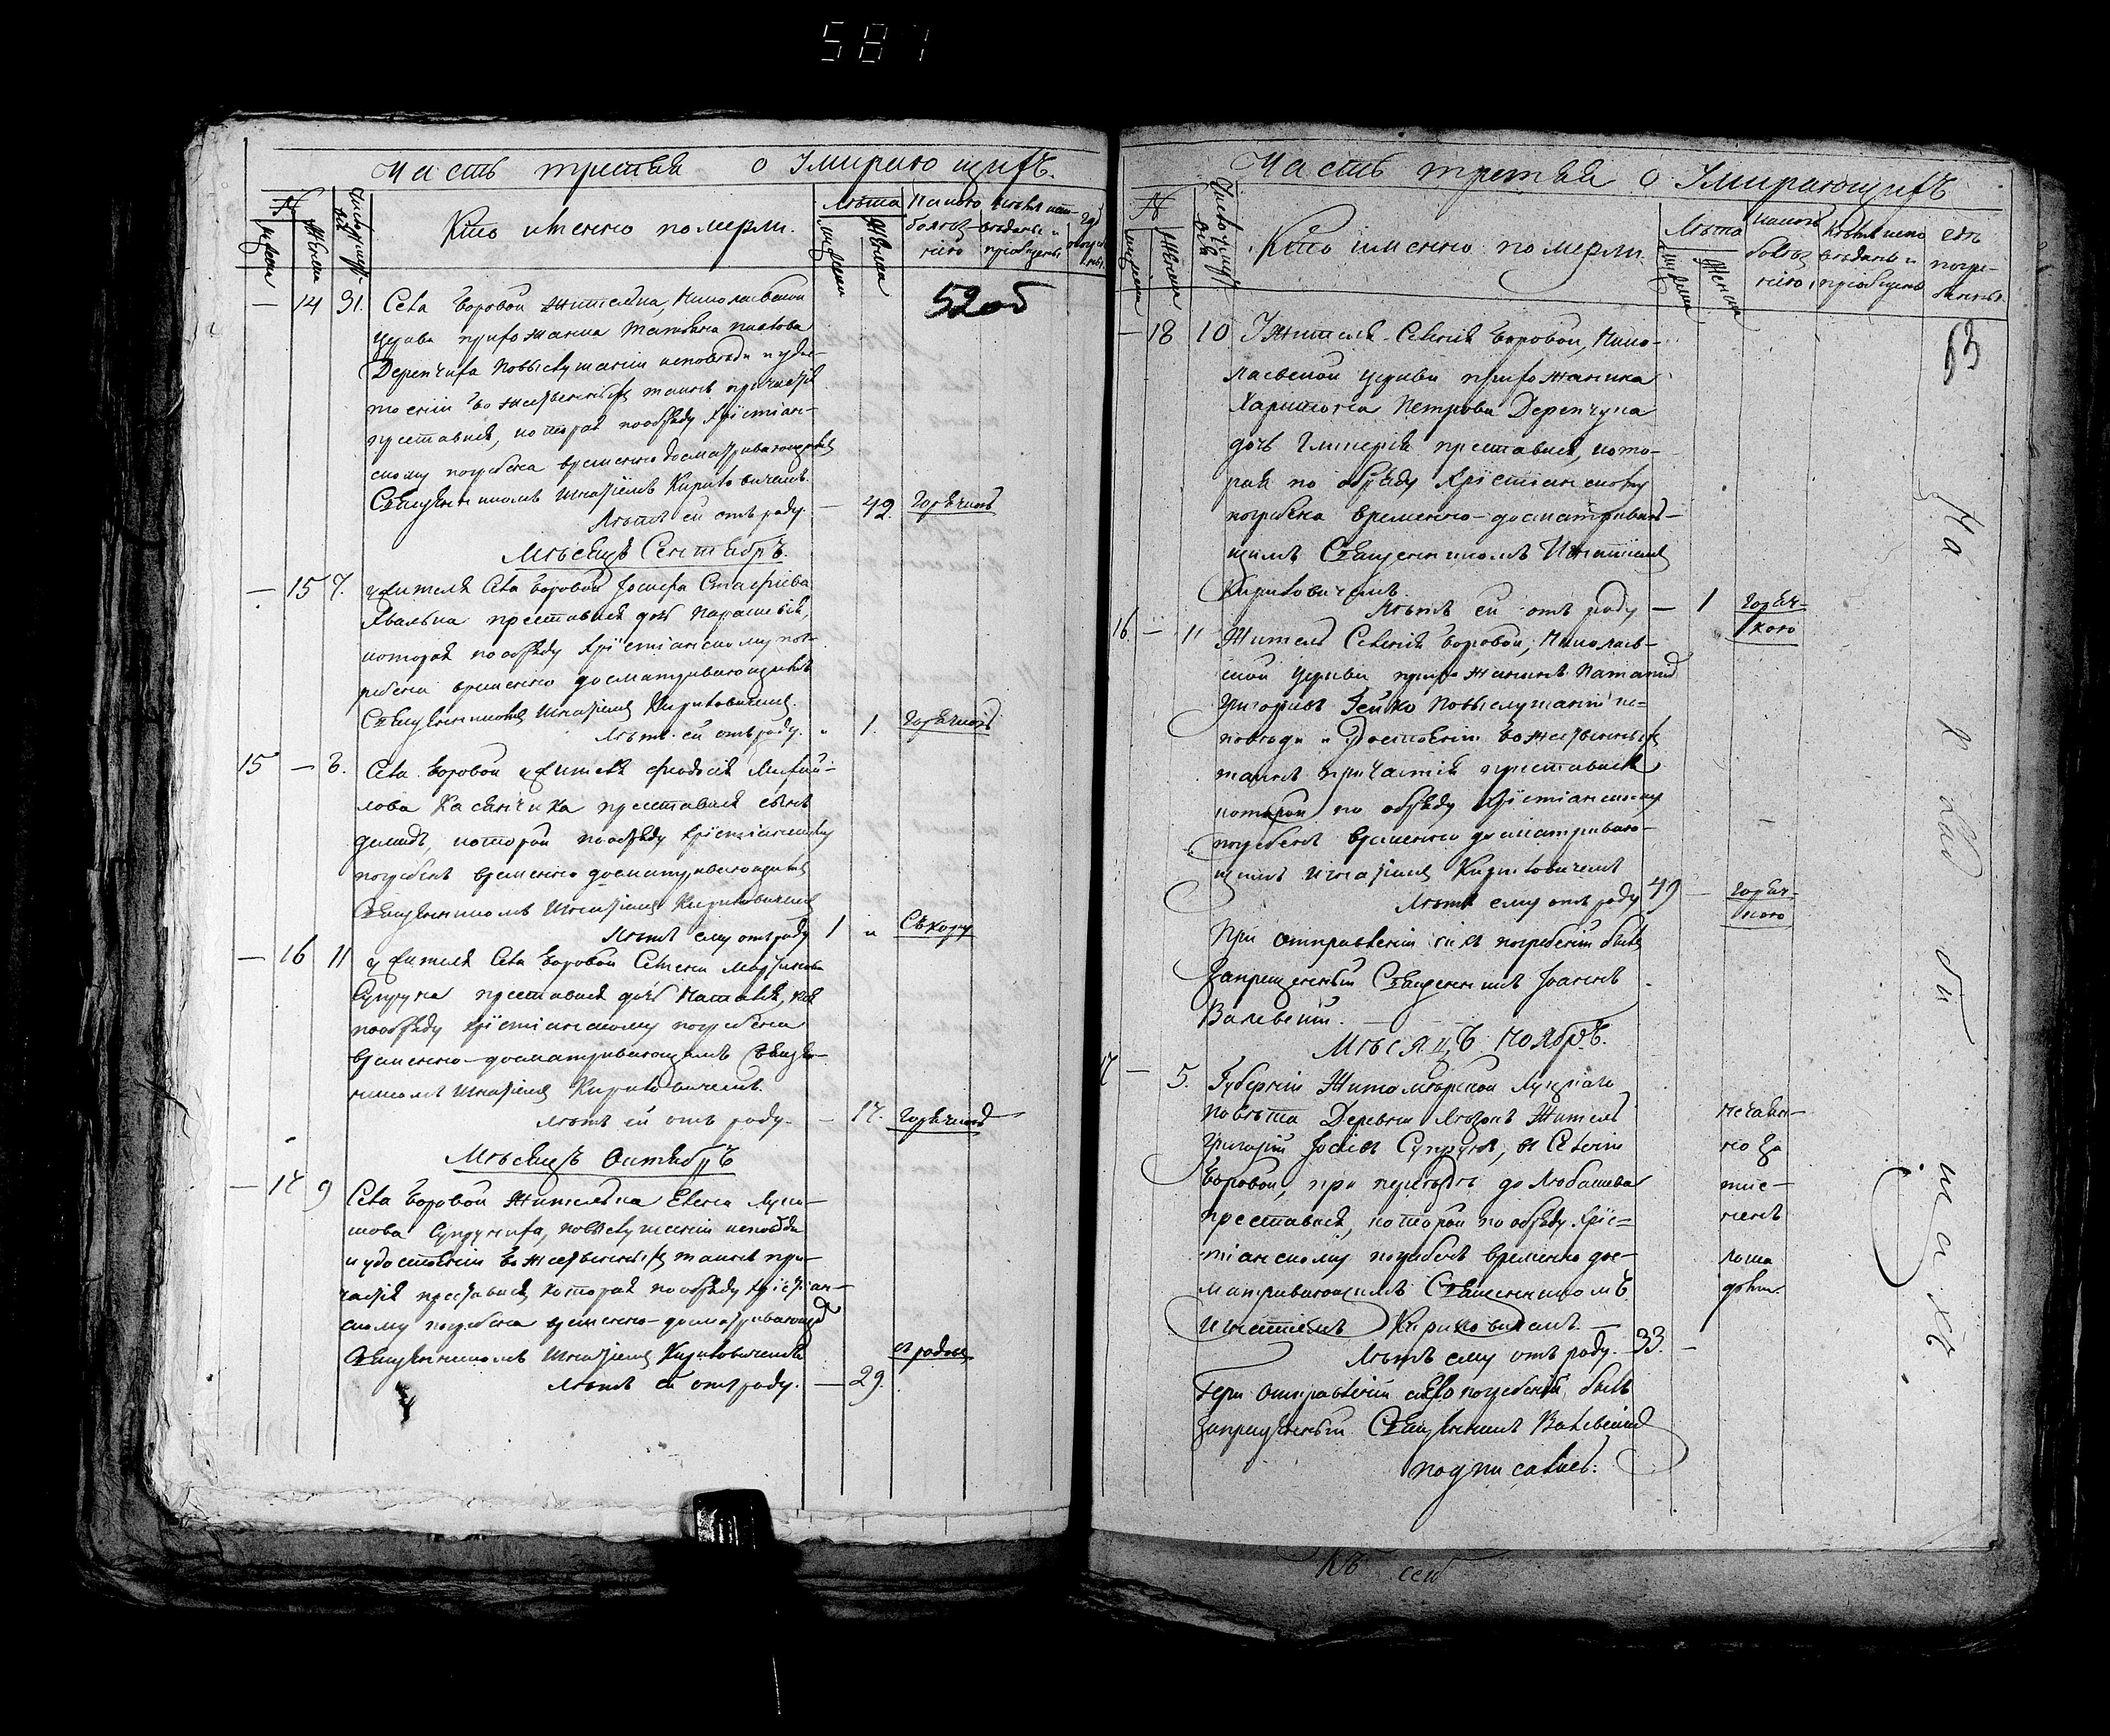 587
Часть третья о Умирающихъ.
№
мужеск
женск
Число умерш
Кто именно померли.
Лѣта
мужеск
женск
Какою болѣз-
нію
исповѣ-
даны и
пріобщены
520б
— 14 31. Села Боровой жителька, Николаевской
церкви прихожанка Татьяна
по выслушаніи исповѣди и удос-
тоеніи Божественныхъ таинъ причастія
преставися, которая по обряду Хрістіан-
скому погребена временно досматривающимъ
Священникомъ Игнатіемъ Кириловичемъ.
Лѣтъ ей отъ роду. — 42. Горячкою
Мѣсяцъ Сентябръ.
— 15 7. жителя Села Боровой Іосифа
преставися дочь Параскевія,
которая по обряду Хрістіанскому пог-
ребена временно досматривающимъ
Священникомъ Игнатіемъ Кириловичемъ.
Лѣтъ ей отъ роду. „ 1. Горячкою
15 — 8. Села Боровой жителя Феодосія Михай-
лова Касянчика преставися сынъ
Демидъ, которой по обряду Хрістіанскому
погребенъ временно досматривающимъ
Священникомъ Игнатіемъ Кириловичемъ
Лѣтъ ему отъ роду 1 „
— 16 11 жителя Села Боровой Семена Мартинова
Супруна преставися дочь Наталія, коя
по обряду Хрістіанскому погребена
временно-досматривающимъ Священ-
никомъ Игнатіемъ Кириловичемъ.
Лѣтъ ей отъ роду. — 17. Горячкою
Мѣсяцъ Октябръ
— 17 9 Села Боровой жителька Елена Луки-
нова Супруниха, по выслушаніи исповѣди
и удостоеніи Божественныхъ таинъ при-
частія преставися, которая по обряду Хрістіан-
скому погребена временно-досматривающимъ
Священникомъ Игнатіемъ Кириловичемъ
Лѣтъ ей отъ роду. — 29.
Часть третья о Умирающихъ
№
мужеск
женск
Число умерш
Кто именно померли.
Лѣта
женск
Какою
болѣз
нію
исповѣданы и
пріобщены
гдѣ
погре-
бенны
53
— 18 10 У жителя Селенія Боровой, Нико-
лаевской церкви прихожанина
Харитона Петрова Дерепчука
дочь Гликерія преставися, кото-
рая по обряду Хрістіанскому
погребена временно-досматриваю-
щимъ Священникомъ Игнатіемъ
Кириловичемъ.
Лѣтъ ей отъ роду — 1 горяч-
кою
16 — 11 Житель Селенія Боровой, Николаев-
ской церкви прихожанинъ
Григоріевъ Гейко по выслушаніи ис-
повѣди и удостоеніи Божественныхъ
таинъ причастія преставися
которой по обряду Хрістіанскому
погребенъ временно досматриваю-
щимъ Игнатіемъ Кириловичемъ
Лѣтъ ему отъ роду 49 — горяч-
кою
При отправленіи сихъ погребеній былъ
Запрещенный Священникъ Іоаннъ
Валевскій.
Мѣсяцъ Ноябръ.
17 — 5. Губерніи Житомирской Луцкаго
повѣта Деревни житель
Григорій Супрунъ, в Селеніи
Боровой, при переѣздѣ до Любашева
преставися, которой по обряду Хріс-
тіанскому погребенъ временно дос-
матривающимъ Священникомъ
Игнатіемъ Кириловичемъ. —
Лѣтъ ему отъ роду. 33. —
нечаян-
но за
тис-
ненъ
лоша
дьми.
При отправленіи сего погребенія былъ
Запрещенный Священникъ Валевскій
подписался:
На кладбищахъ